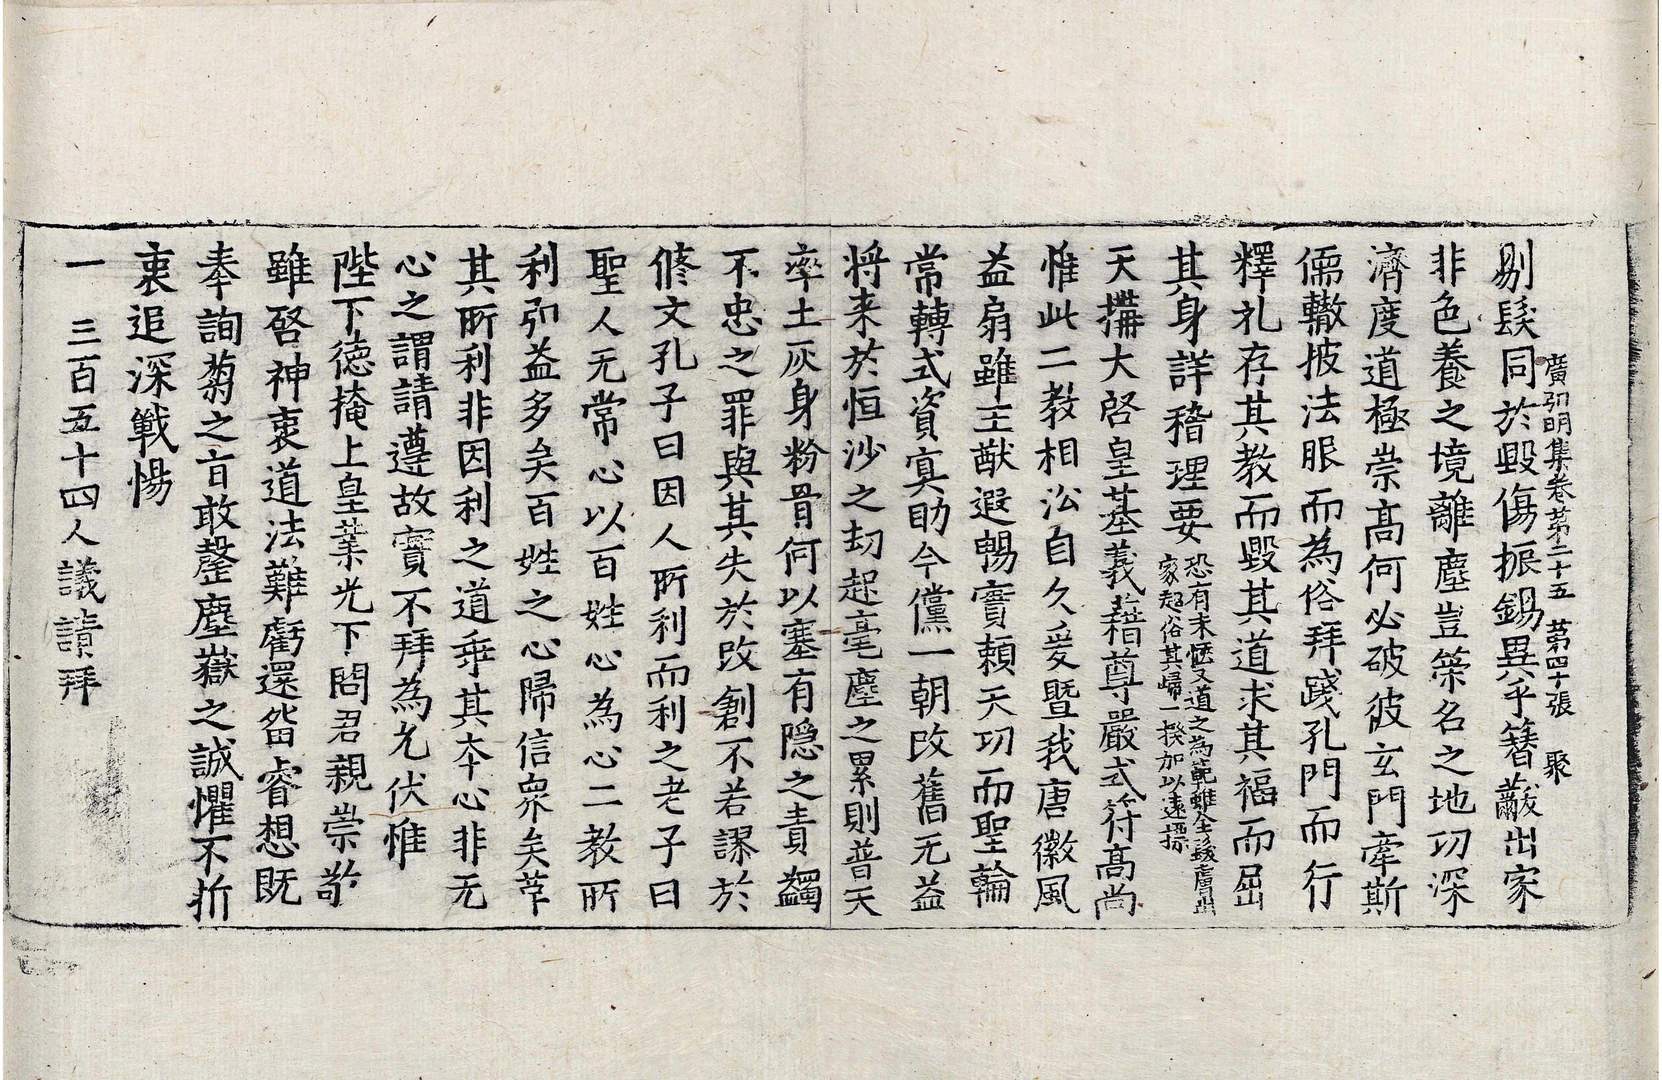 廣弘明集卷第二十五 第四十張 聚
剔髮同於毀傷振錫異乎簪黻出家
非色養之境離塵豈榮名之地功深
濟度道極崇高何必破彼玄門牽斯
儒轍披法服而為俗拜踐孔門而行
釋礼存其教而毀其道求其福而屈
其身詳稽理要
恐有未愜又道之為範雖全髮膚出
家超俗其歸一揆加以遠標
天構大啓皇基義藉尊嚴式符高尚
惟此二教相沿自久爰暨我唐徽風
益扇雖王猷遐暢實頼天功而聖輪
常轉式資冥助今儻一朝改舊无益
将来於恒沙之劫起毫塵之累則普天
率土灰身粉骨何以塞有隐之責蠲
不忠之罪與其失於改創不若謬於
修文孔子曰因人所利而利之老子曰
聖人无常心以百姓心為心二教所
利弘益多矣百姓之心歸信衆矣革
其所利非因利之道乖其本心非无
心之謂請遵故實不拜為允伏惟
陛下徳掩上皇業光下問君親崇敬
雖啓神衷道法難虧還留睿想既
奉詢蒭之旨敢罄塵嶽之誠懼不折
衷追深戰惕
一 三百五十四人議請拜